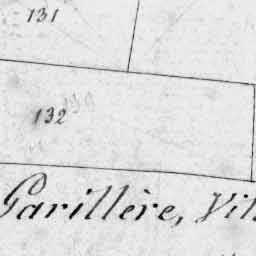 131
132
Garillère, Vil